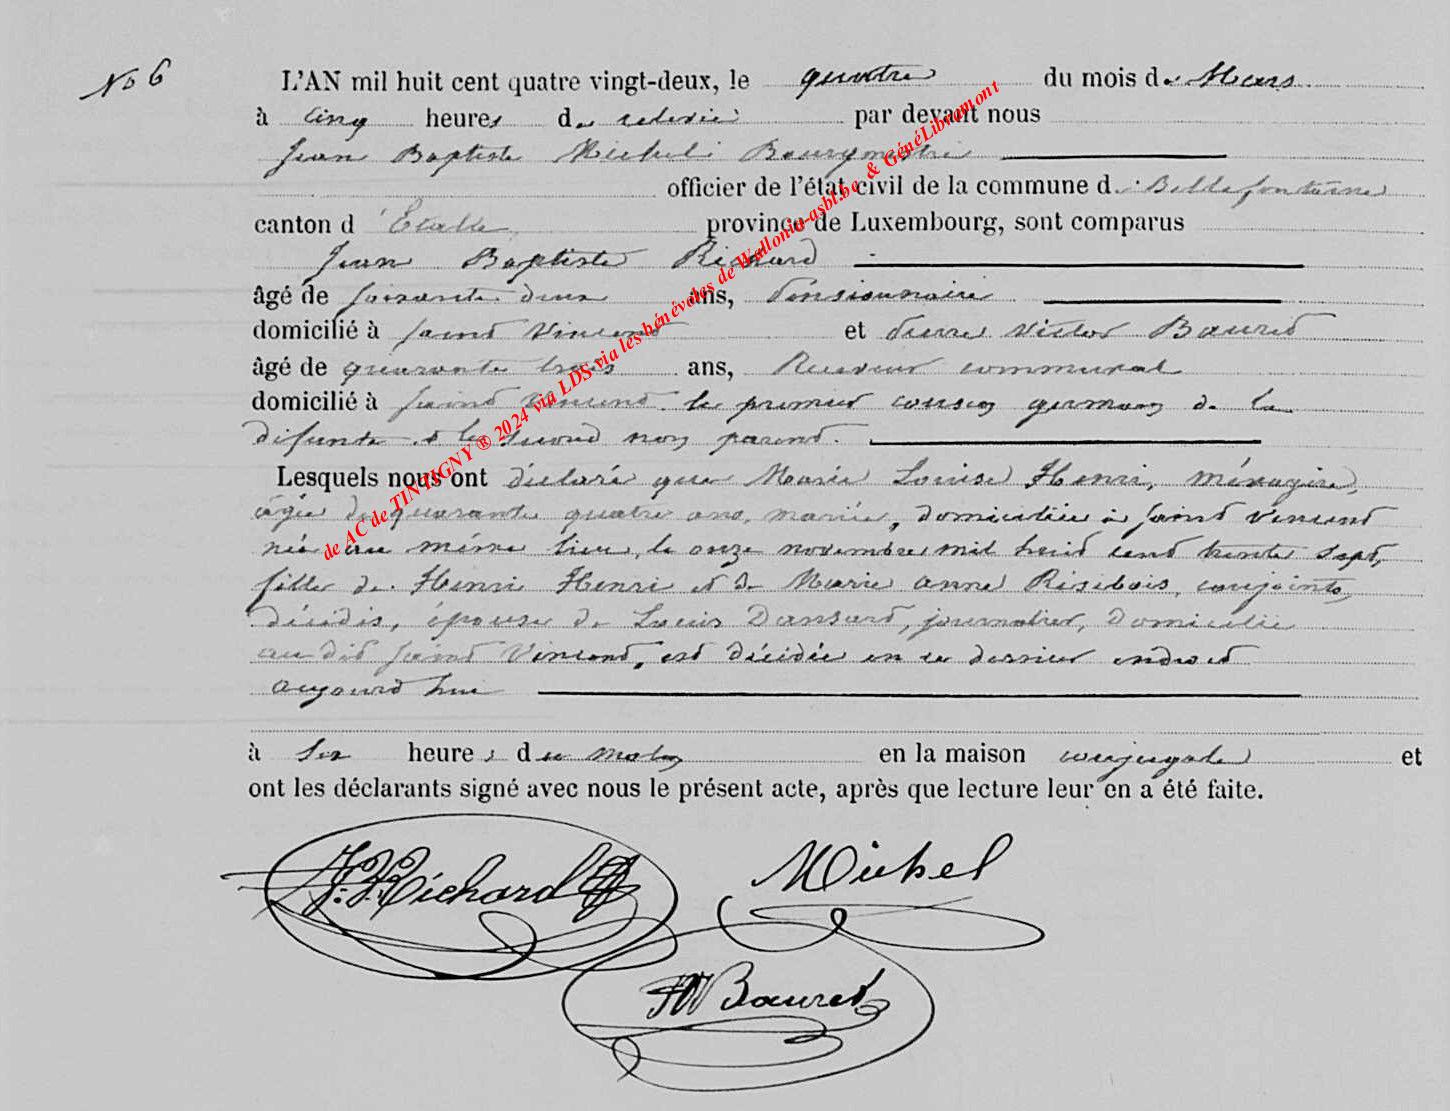 No 6
L'AN mil huit cent quatre vingt-deux, le quatre du mois de Mars
à cinq heures de relevée par devant nous
Jean Baptiste Michel Bourgmestre
officier de l'état civil de la commune de Bellefontaine
canton d'Etalle province de Luxembourg, sont comparus
Jean Baptiste Richard
âgé de soixante deux ans, Pensionnaire
domicilié à Saint Vincent et Pierre Victor Bauret
âgé de quarante trois ans, Receveur communal
domicilié à Saint Vincent le premier cousin germain de la
défunte et le second non parent.
Lesquels nous ont déclaré que Marie Louise Henri, ménagère,
âgée de quarante quatre ans, mariée, domiciliée à Saint Vincent
née au même lieu, le onze novembre mil huit cent trente sept,
fille de Henri Henri et de Marie Anne Risibois, conjoints,
décédés, épouse de Louis Dansard, journalier, domicilié
au dit Saint Vincent, est décédée en ce dernier endroit
aujourd'hui
à six heures du matin en la maison conjugale et
ont les déclarants signé avec nous le présent acte, après que lecture leur en a été faite.
J.B. Richard
Michel
PV Bauret
de AC de TINTIGNY ® 2024 via LDS via les bénévoles de Wallonia-asbl.be & GénéLibramont